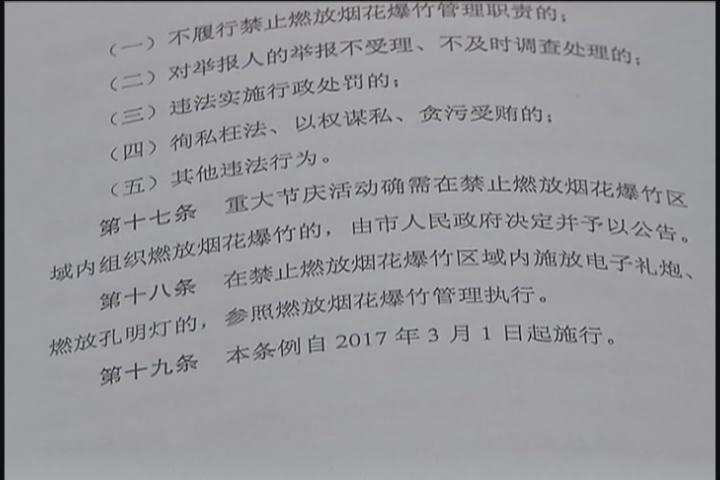 （一）不履行禁止燃放烟花爆竹管理职责的；
（二）对举报人的举报不受理、不及时调查处理的；
（三）违法实施行政处罚的；
（四）徇私枉法、以权谋私、贪污受贿的；
（五）其他违法行为。
第十七条 重大节庆活动确需在禁止燃放烟花爆竹区
域内组织燃放烟花爆竹的，由市人民政府决定并予以公告。
第十八条 在禁止燃放烟花爆竹区域内施放电子礼炮、
燃放孔明灯的，参照燃放烟花爆竹管理执行。
第十九条 本条例自 2017 年 3 月 1 日起施行。